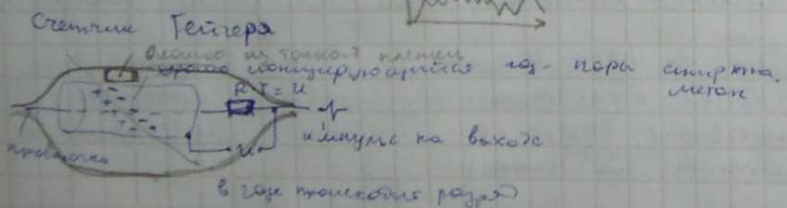 Счетчик Гейгера
окошко из тонкой пленки
хорошо ионизирующийся газ - пары спирта,
метан
R I = U
импульс на выходе
проволочка
U
в газе происходит разряд